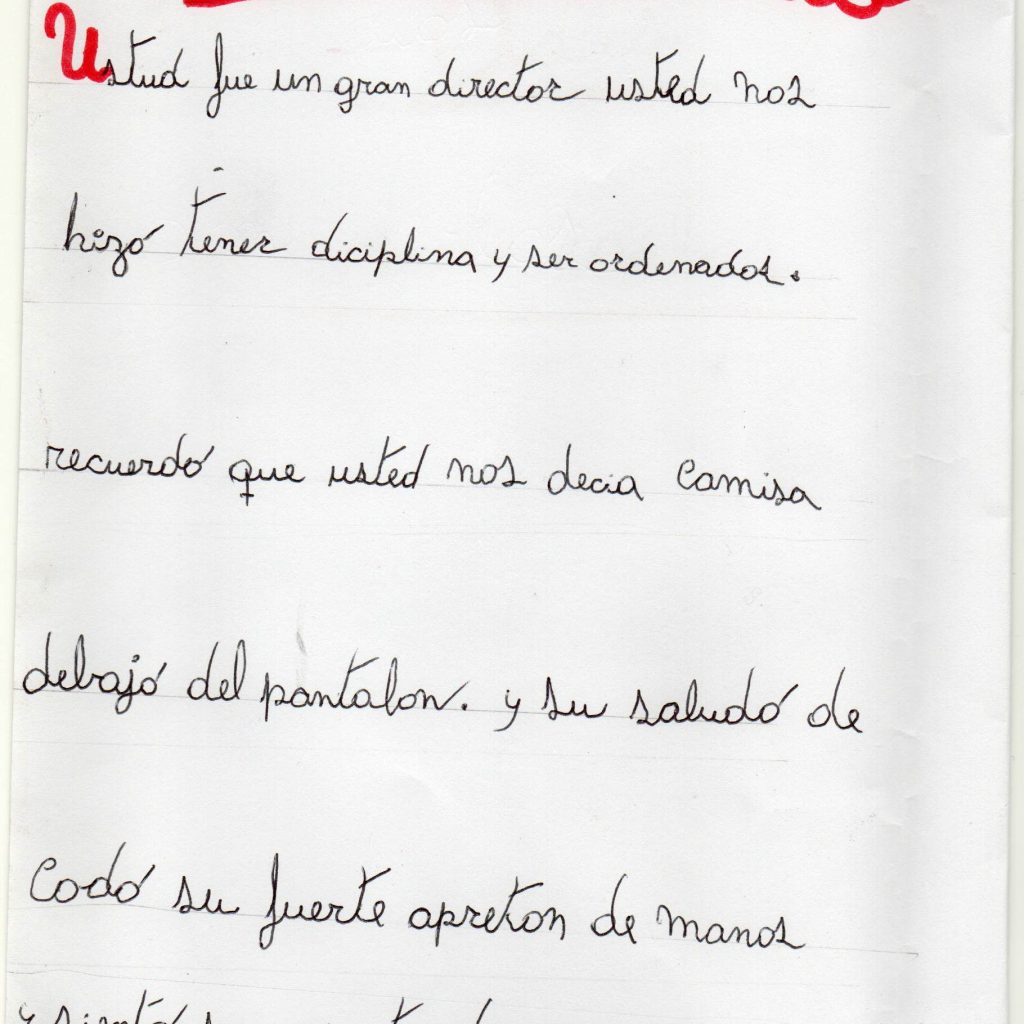 Ustud fue un gran director usted nos
hizó tener diciplina y ser ordenados.
recuerdó que usted nos decia camisa
debajó del pantalon. y su saludó de
codó su fuerte apreton de manos
y